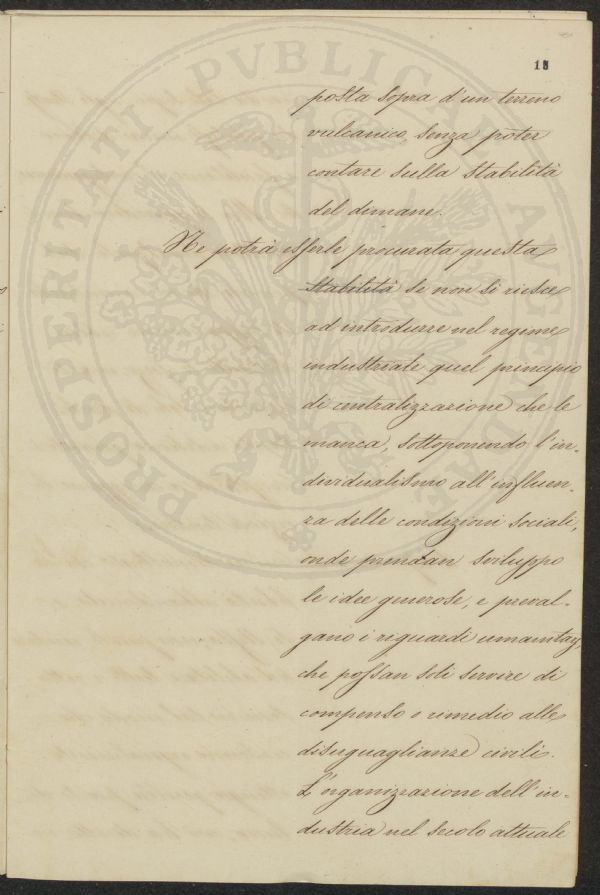 18
posta sopra d'un terreno
vulcanico senza poter
contare sulla stabilità
del dimane.
Ne potrà esserle procurata questa
stabilità se non si riesce
ad introdurre nel regime
industriale quel principio
di centralizzazione che le
manca, sottoponendo l'in-
dividualismo all'influen-
za delle condizioni sociali,
onde prendan sviluppo
le idee generose, e preval-
gano i riguardi umanitay,
che possan soli servire di
compenso o rimedio alle
disuguaglianze civili.
L'organizzazione dell'in-
dustria nel secolo attuale
PROSPERITATI PVBLICAE AVGENDAE